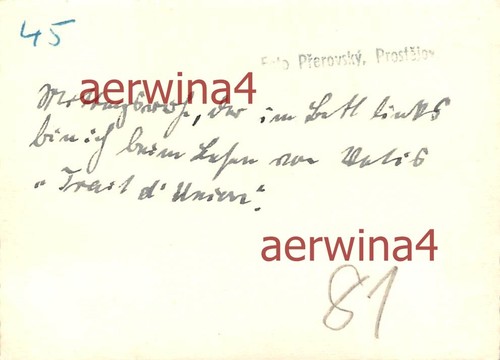 45
Foto Přerovský, Prostějov
aerwina4
Mittagsruhe, der im Bett links
bin ich beim Lesen von Vatis
"Trait d'Union".
aerwina4
81